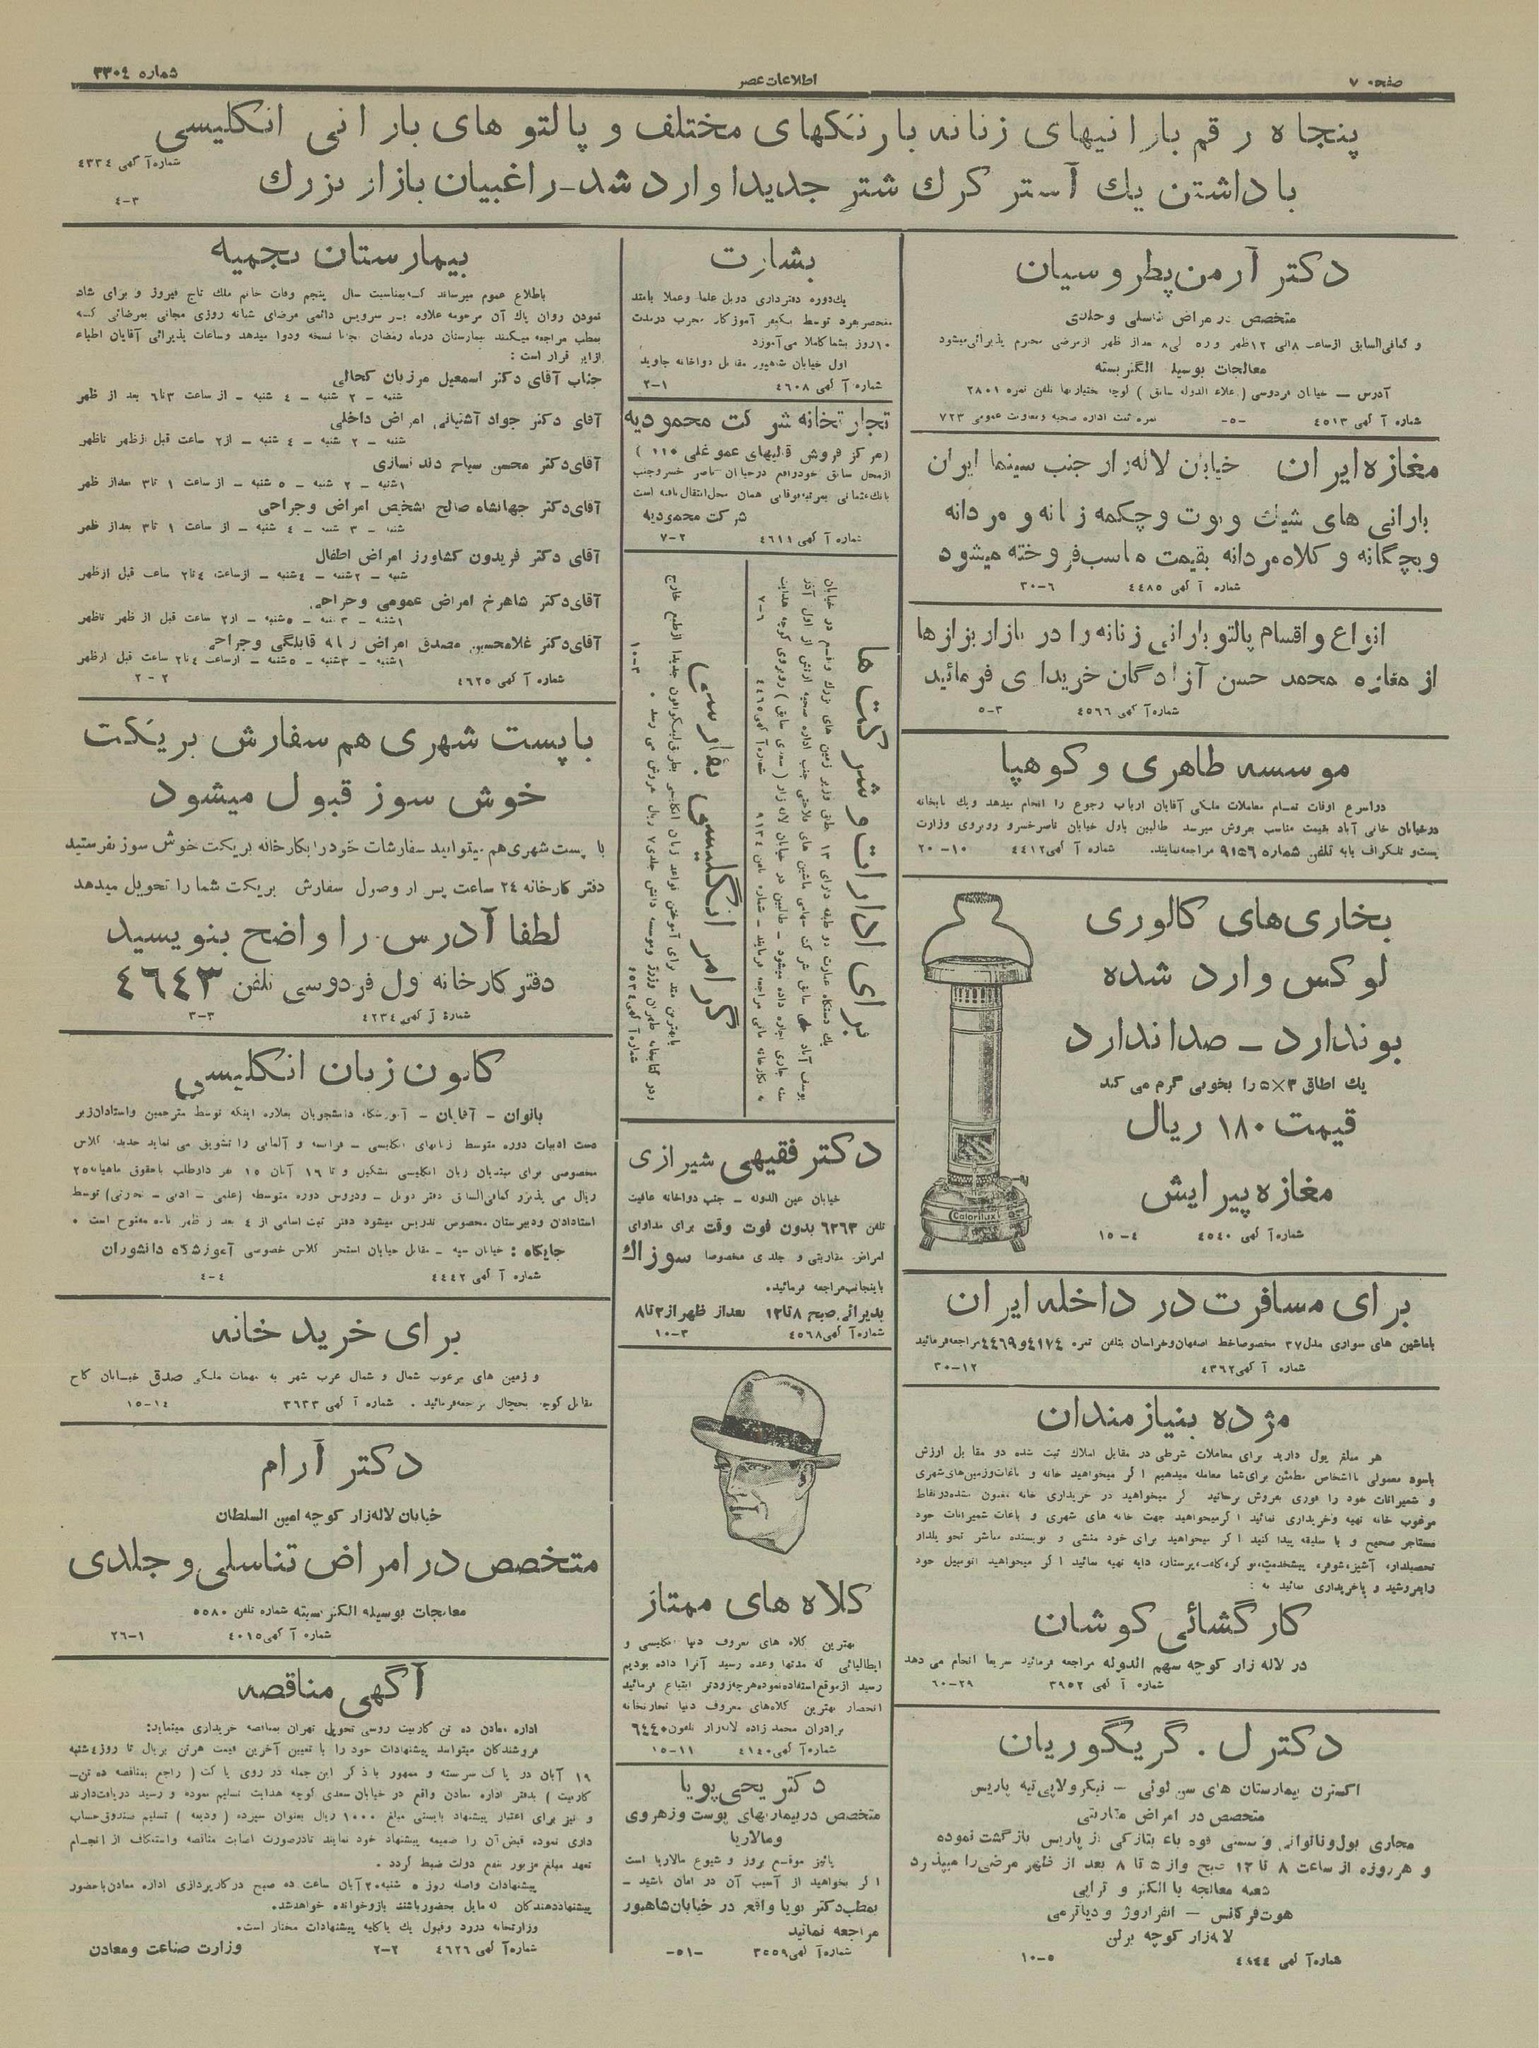 صفحه ۷
اطلاعات عصر
شماره ۳۳۰٤
پنجاه رقم بارانیهای زنانه بارنکهای مختلف و پالتو های بارانی انکلیسی
شماره آگهی ٤۳۳٤
باداشتن یك آستر کرك شتر جدیدا وارد شد-راغبیان بازار بزرك
۳-٤
دکتر آرمن پطروسیان
متخصص در مراض تناسلی و جلدی
و کمافی‌السابق ازساعت ۸ الی ۱۲ ظهر و ۵ الی ۸ بعداز ظهر ازمرضی محترم پذیرائی میشود
معالجات بوسیله الکتریسته
آدرس — خیابان فردوسی (علاء الدوله سابق) کوچه بختیاریها تلفن نمره ۲۸۰۱
شماره آ گهی ٤۵۱۳ -۵- نمره ثبت اداره صحیه ومعاونت عمومی ۷۲۳
مغازه ایران خیابان لاله‌زار جنب سینما ایران
بارانی های شیك و بوت و چکمه زنانه و مردانه
و بچگانه و کلاه مردانه بقیمت مناسب فروخته میشود
شماره آ گهی ٤٤۸۵ ٦-۳۰
انواع و اقسام پالتو بارانی زنانه را در بازار بزازها
از مغازه محمد حسن آزادگان خریداری فرمائید
شماره آ گهی ٤۵٦٦ ۳-۵
موسسه طاهری و کوهپا
دراسرع اوقات تمام معاملات ملکی آقایان ارباب رجوع را انجام میدهد ویك بابخانه
درخیابان خانی آباد بقیمت مناسب بفروش میرسد طالبین باول خیابان ناصرخسرو روبروی وزارت
پست‌و تلگراف یابه تلفن شماره ۹۱۵٦ مراجعه‌نمایند. شماره آ گهی ٤٤۱۲ ۱۰-۲۰
بخاری‌های کالوری
لوکس وارد شده
بوندارد ـ صداندارد
یك اطاق ۳×۵ را بخوبی گرم می کند
قیمت ۱۸۰ ریال
مغازه پیرایش
شماره آ گهی ٤۵٤۰ ٤-۱۵
Calorilux
برای مسافرت در داخله ایران
باماشین های سواری مدل۳۷ مخصوصاخط اصفهان‌وخراسان بتلفن نمره ٤۱۷٤و٤٤٦۹مراجعه‌فرمائید
شماره آ گهی ٤۳٦۲ ۱۲-۳۰
مژده بنیازمندان
هر مبلغ پول دارید برای معاملات شرطی در مقابل املاك ثبت شده دو مقابل ارزش
باسود معمولی بااشخاص مطمئن برای‌شما معامله میدهیم اگر میخواهید خانه و باغات‌وزمین‌های‌شهری
و شمیرانات خود را فوری بفروش برسانید اگر میخواهید در خریداری خانه مغبون نشده‌درنقاط
مرغوب خانه تهیه وخریداری نمائید اگرمیخواهید جهت خانه های شهری و باغات شمیرانات خود
مستاجر صحیح و با سلیقه پیدا کنید اگر میخواهید برای خود منشی و نویسنده مباشر تحویلدار
تحصیلدار، آشپز، شوفر، پیشخدمت، نوکر، کلفت، پرستار، دایه تهیه نمائید اگر میخواهید اتومبیل خود
رابفروشید و یاخریداری نمائید به :
کارگشائی کوشان
در لاله زار کوچه سهم الدوله مراجعه فرمائید سریعا انجام می دهد
شماره آ گهی ۳۹۵۲ ۲۹-٦۰
دکتر ل. گریگوریان
اکسترن بیمارستان های سن لوئی — نیکر ولاپی‌تیه پاریس
متخصص در امراض مقاربتی
مجاری بول وناتوانی وسستی قوه باء بتازکی از پاریس بازگشت نموده
و هرروزه از ساعت ۸ تا ۱۲ صبح واز ۵ تا ۸ بعد از ظهر مرضی‌را میپذیرد
شعبه معالجه با الکتر و تراپی
هوت‌فرکانس — انفراروژ و دیاترمی
لاله‌زار کوچه برلن
شماره آ گهی ٤۸٤٤ ۵-۱۰
بشارت
یك‌دوره دفترداری دوبل علما وعملا بامتد
منحصربفرد توسط یکنفر آموزکار مجرب درمدت
۱۰روز بشماکاملا می‌آموزد
اول خیابان شاهپور مقابل دواخانه جاوید
شماره آ گهی ٤٦۰۸ ۱-۲
تجارتخانه شرکت محمودیه
(مرکز فروش قالیهای عمو غلی ۱۱۰ )
ازمحل سابق خودواقع درخیابان ناصر خسروجنب
بانك‌عثمانی بمرتبه‌فوقانی همان محل‌انتقال‌یافته است
شرکت محمودیه
شماره آ گهی ٤٦۱۱ ۲-۷
برای ادارات و شرکت ها
یك دستگاه عمارت دو طبقه دارای ۱۳ اطاق وزیر زمین های بزرك واقع در خیابان
یوسف آباد محل سابق شرکت سهامی ماشین های فلاحتی جنب اداره صحیه ارتش از اول آذر
ماه جاری اجاره داده میشود – طالبین در خیابان لاله زار (سعدی سابق) روبروی کوچه هدایت
به نگارخانه مانی مراجعه فرمایند – شماره تلفن ۹۱۳٤ شماره آ گهی ٤٤٦۵ ٦-۷
گرامر انگلیسی بفارسی
بابهترین متد برای آموختن قواعد زبان انکلیسی بطرزلینگوافون جدیدا ازطبع خارج
ودر کتابخانه طهران وموسسه دانش جلدی۷ ریال بفروش می رسد .
شماره آ گهی ٤۵۳٤ ۳-۱۰
دکتر فقیهی شیرازی
خیابان عین الدوله – جنب دواخانه عاقبت
تلفن ٦۳٦۳ بدون فوت وقت برای مداوای
امراض مقاربتی و جلدی مخصوصا سوزاك
باینجانب‌مراجعه فرمائید.
پذیرائی صبح ۸ تا ۱۲ بعداز ظهر از ۳ تا ۸
شماره آ گهی ٤۵٦۸ ۳-۱۰
کلاه های ممتاز
بهترین کلاه های معروف دنیا انکلیسی و
ایطالیائی که مدتها وعده رسید آنرا داده بودیم
رسید ازموقع‌استفاده‌نموده‌هرچه‌زودتر ابتیاع فرمائید
انحصار بهترین کلاه‌های معروف دنیا تجارتخانه
برادران محمد زاده لاله‌زار تلفون ٦٤٤۰
شماره آ گهی ٤۱٤۰ ۱۱-۱۵
دکتر یحیی پویا
متخصص دربیماریهای پوست وزهروی
ومالاریا
پائیز موقع بروز و شیوع مالاریا است
اگر بخواهید از آسیب آن در امان باشید –
بمطب‌دکتر پویا واقع در خیابان‌شاهپور
مراجعه نمائید
شماره آ گهی ۳۵۵۹ -۵۱-
بیمارستان نجمیه
باطلاع عموم میرساند که بمناسبت سال پنجم وفات خانم ملك تاج فیروز و برای شاد
نمودن روان پاك آن مرحومه علاوه بر سرویس دائمی مرضای شبانه روزی مجانی بمرضائی که
بمطب مراجعه میکنند بیمارستان درماه رمضان مجانا نسخه ودوا میدهد وساعات پذیرائی آقایان اطباء
ازاین قرار است :
جناب آقای دکتر اسمعیل مرزبان کحالی
شنبه – ۲ شنبه – ٤ شنبه – از ساعت ۳تا٦ بعد از ظهر
آقای دکتر جواد آشتیانی امراض داخلی
شنبه – ۲ شنبه – ٤ شنبه – از۲ ساعت قبل ازظهر تاظهر
آقای دکتر محسن سیاح دندانسازی
۱شنبه – ۲ شنبه – ۵ شنبه – از ساعت ۱ تا۳ بعداز ظهر
آقای دکتر جهانشاه صالح تشخیص امراض وجراحی
شنبه – ۳ شنبه – ٤ شنبه – از ساعت ۱ تا۳ بعداز ظهر
آقای دکتر فریدون کشاورز امراض اطفال
شنبه – ۲شنبه – ٤شنبه – ازساعت ٤تا۲ ساعت قبل ازظهر
آقای دکتر شاهرخ امراض عمومی وجراحی
۱شنبه – ۳شنبه – ۵شنبه – از۲ ساعت قبل از ظهر تاظهر
آقای دکتر غلامحسین مصدق امراض زنانه قابلگی وجراحی
۱شنبه – ۳شنبه – ۵شنبه – ازساعت ٤تا۲ ساعت قبل ازظهر
شماره آ گهی ٤٦۲۵ ۲-۲
باپست شهری هم سفارش بریکت
خوش سوز قبول میشود
با پست شهری‌هم میتوانید سفارشات خودرا بکارخانه بریکت خوش سوز بفرستید
دفتر کارخانه ۲٤ ساعت پس از وصول سفارش بریکت شما را تحویل میدهد
لطفا آدرس را واضح بنویسید
دفتر کارخانه اول فردوسی تلفن ٤٦٤۳
شماره آ گهی ٤۲۳٤ ۳-۳
کانون زبان انکلیسی
بانوان – آقایان – آموزشگاه دانشجویان بعلاوه اینکه توسط مترجمین واستادان‌زبر
دست ادبیات دوره متوسط زبانهای انکلیسی – فرانسه و آلمانی را تشویق می نماید جدیدا کلاس
مخصوصی برای مبتدیان زبان انکلیسی تشکیل و تا ۱٦ آبان ۱۵ نفر داوطلب باحقوق ماهیانه۲۵
ریال می پذیرد کمافی‌السابق دفتر دوبل – ودروس دوره متوسطه (علمی – ادبی – تجارتی) توسط
استادان ودبیرستان مخصوص تدریس میشود دفتر ثبت اسامی از ٤ بعد از ظهر بامه مفتوح است .
جایگاه : خیابان سپه – مقابل خیابان استخر کلاس خصوصی آموزشگاه دانشوران
شماره آ گهی ٤٤٤۲ ٤-٤
برای خرید خانه
و زمین های مرغوب شمال و شمال غرب شهر به مهمات ملکی صدق خیابان کاخ
مقابل کوچه یخچال مراجعه‌فرمائید . شماره آ گهی ۳٦۳۳ ۱٤-۱۵
دکتر آرام
خیابان لاله‌زار کوچه امین السلطان
متخصص در امراض تناسلی و جلدی
معالجات بوسیله الکتریسیته شماره تلفن ۵۵۸۰
شماره آ گهی ٤۰۱۵ ۱-۲٦
آگهی مناقصه
اداره معادن ده تن کاربیت روسی تحویل تهران بمناقصه خریداری مینماید:
فروشندگان میتوانند پیشنهادات خود را با تعیین آخرین قیمت هرتن بریال تا روز ٤شنبه
۱۹ آبان در پاکت سربسته و ممهور باذکر این جمله در روی پاکت ( راجع بمناقصه ده تن–
کاربیت ) بدفتر اداره معادن واقع در خیابان سعدی کوچه هدایت تسلیم نموده و رسید دریافت‌دارند
و نیز برای اعتبار پیشنهاد بایستی مبلغ ۱۰۰۰ ریال بعنوان سپرده ( ودیعه ) تسلیم صندوق‌حساب
داری نموده قبض‌آن را ضمیمه پیشنهاد خود نمایند تادرصورت اصابت مناقصه واستنکاف از انجام
تعهد مبلغ مزبور بنفع دولت ضبط گردد .
پیشنهادات واصله روز ۵ شنبه۲۰آبان ساعت ده صبح درکارپردازی اداره معادن‌باحضور
پیشنهاددهندگان که‌مایل بحضورباشند بازوخوانده خواهدشد.
وزارتخانه دررد وقبول یك یاکلیه پیشنهادات مختار است.
شماره آ گهی ٤٦۲٦ ۲-۲ وزارت صناعت و معادن